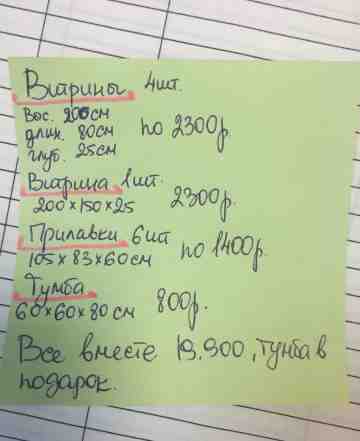 Витрины 4шт.
Выс. 200см
длин. 80см
глуб. 25см
по 2300р.
Витрина 1шт.
200×150×25
2300р.
Прилавки 6шт
105×83×60см
по 1400р.
Тумба
60×60×80см
800р.
Все вместе 19.900, тумба в
подарок.